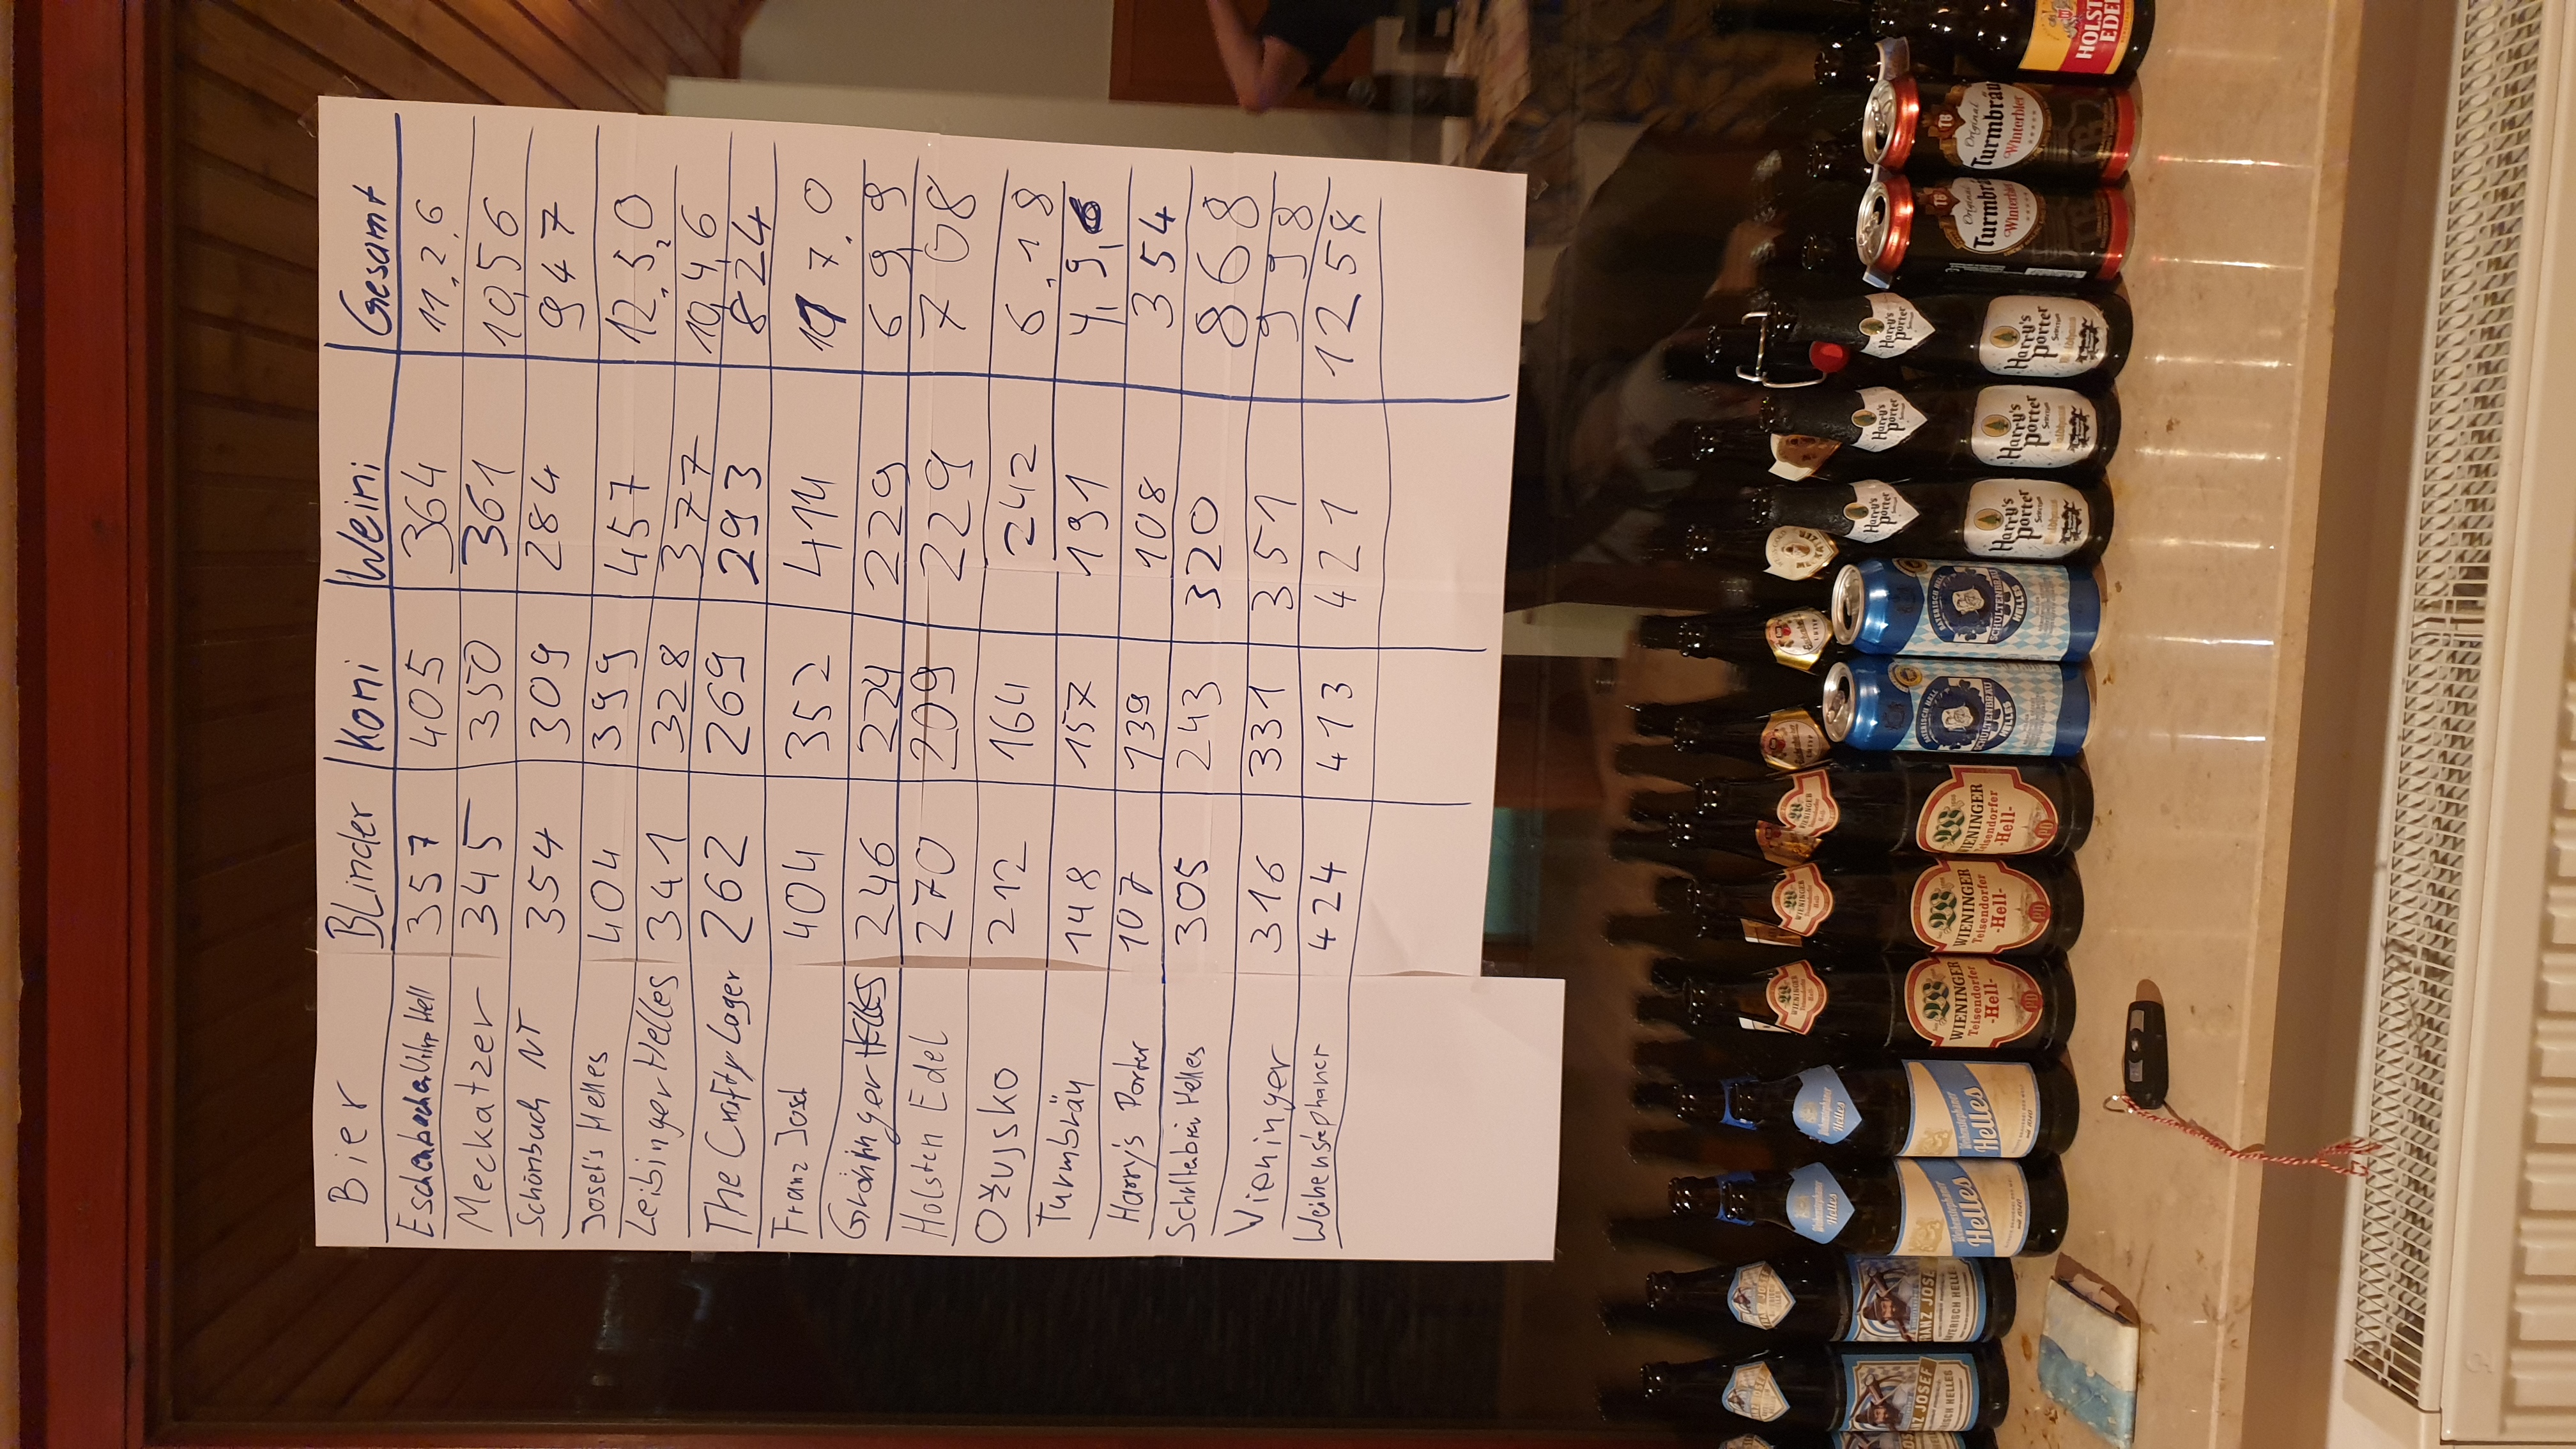 Bier BLinder Koni Weini Gesamt
357 405 364 11.2.6
Meckatzer 345 350 361 10,56
Schönbuch NT 354 309 284 947
Josef's Helles 404 399 457 12.5.0
Leibinger Helles 341 328 377 10,46
The Crafty Lager 262 269 293 824
Franz Josef 404 352 414 7.0
Helles 246 224 229 699
Holsten Edel 270 209 229 708
Ožujsko 212 164 242 6.18
Turmbräu 148 157 191 4,96
Harry's Porter 107 139 108 354
Helles 305 243 320 868
Vieninger 316 331 351 998
Weihenstephaner 424 413 421 1258
FRANZ JOSEF
BAYERISCH HELLES
FRANZ JOSEF
BAYERISCH HELLES
Weihenstephaner
Helles
Weihenstephaner
Helles
Weihenstephaner
Helles
Weihenstephaner
Helles
WIENINGER
WIENINGER
Teisendorfer
-Hell-
WIENINGER
WIENINGER
Teisendorfer
-Hell-
WIENINGER
WIENINGER
Teisendorfer
-Hell-
BAYERISCH HELL
SCHULTENBRÄU
HELLES
BAYERISCH HELL
SCHULTENBRÄU
HELLES
Harry's
Porter
Harry's
Porter
Harry's
Porter
Harry's
Porter
Harry's
Porter
Harry's
Porter
TB
Original
Turmbräu
Winterbier
TB
Original
Turmbräu
Winterbier
HOLST
EDE